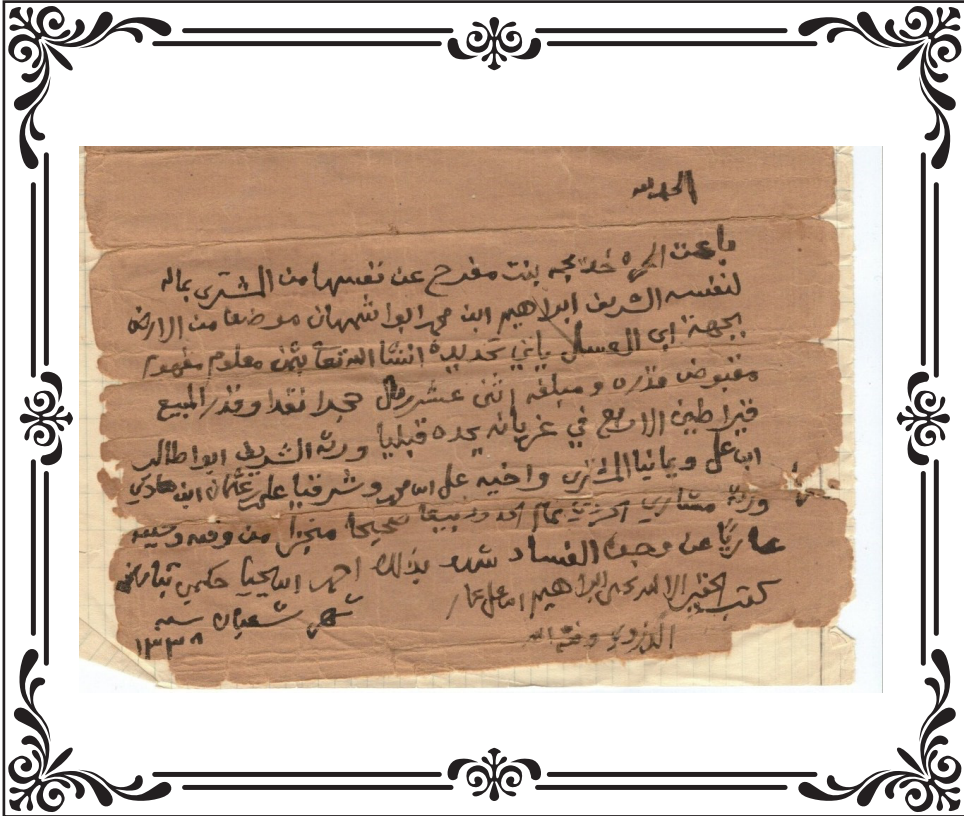 الحمد لله
باعت الحره خديجه بنت مفرح عن نفسها من المشتري بماله
لنفسه الشريف ابراهيم ابن محمد ابوا شهران موضعا من الارض
بجهة ابي العسل ياتي تحديده انشا الله تعا بثمن معلوم مفهوم
مقبوض قدره ومبلغه اثنى عشر ريال حجرا نقدا وقدر المبيع
قيراطين الاربع في غربانه يحده قبليا ورثة الشريف ابوا طالب
ابن علي ويمانيا المشتري واخيه علي ابن محمد وشرقيا علي عثمان ابن هادي
ورثة مشاري تمام الحدود بيعا صحيحا منجزا من وقته وحينه
عاريا عن وجوه الفساد شهد بذلك احمد ابن يحيا حكمي
كتب الحقير الا الله ابراهيم ابن علي
شهر شعبان سنه
وفقه الله
١٣٣٨